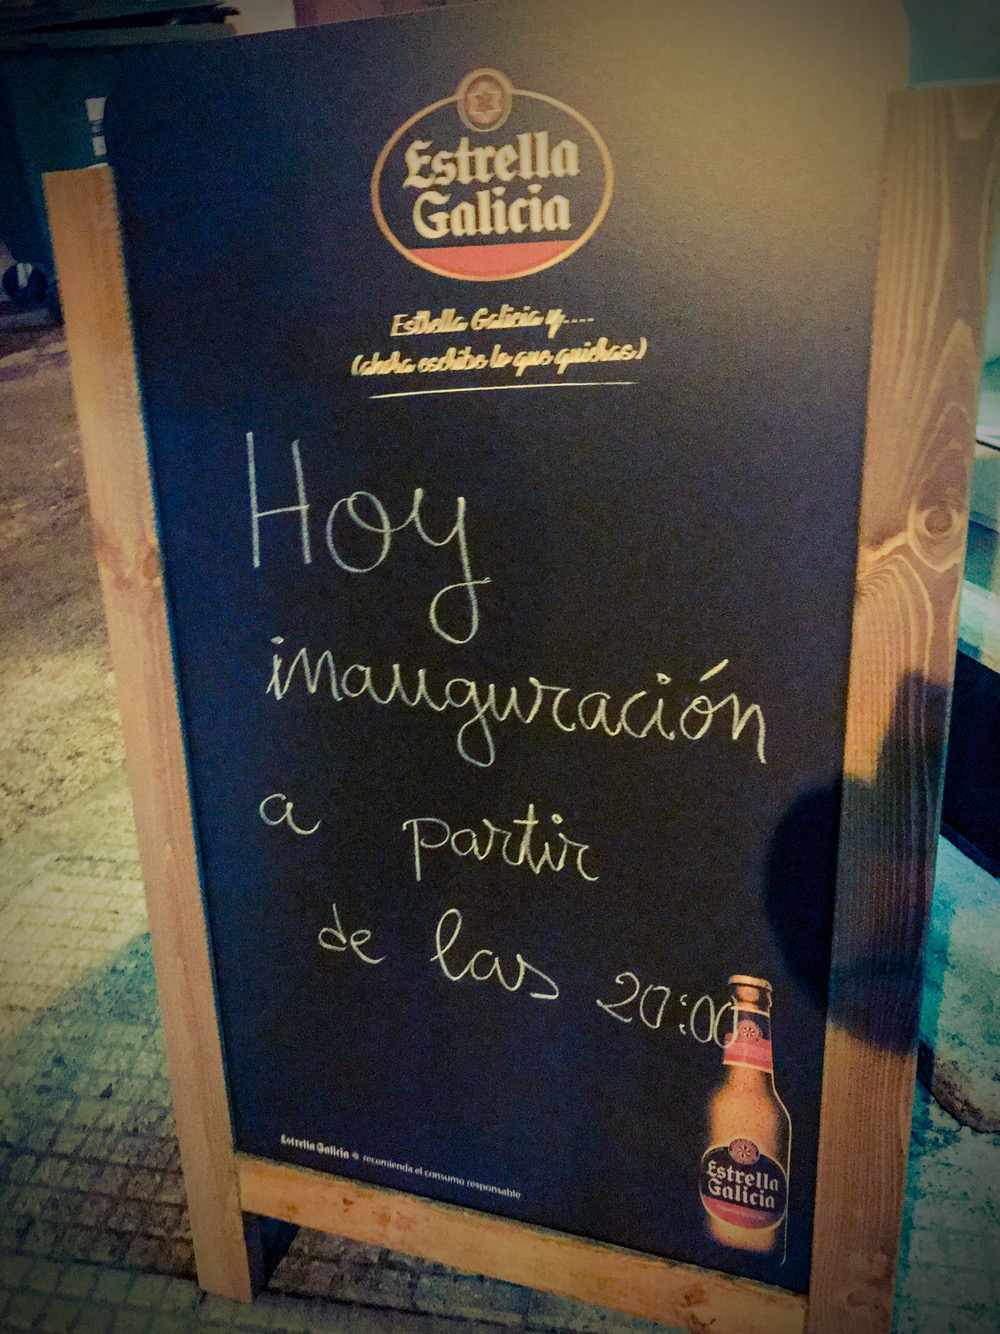 Estrella
Galicia
Estrella Galicia y....
(ahora escribe lo que quieras)
Hoy
inauguración
a partir
de las 20:00
Estrella Galicia recomienda el consumo responsable
Estrella
Galicia